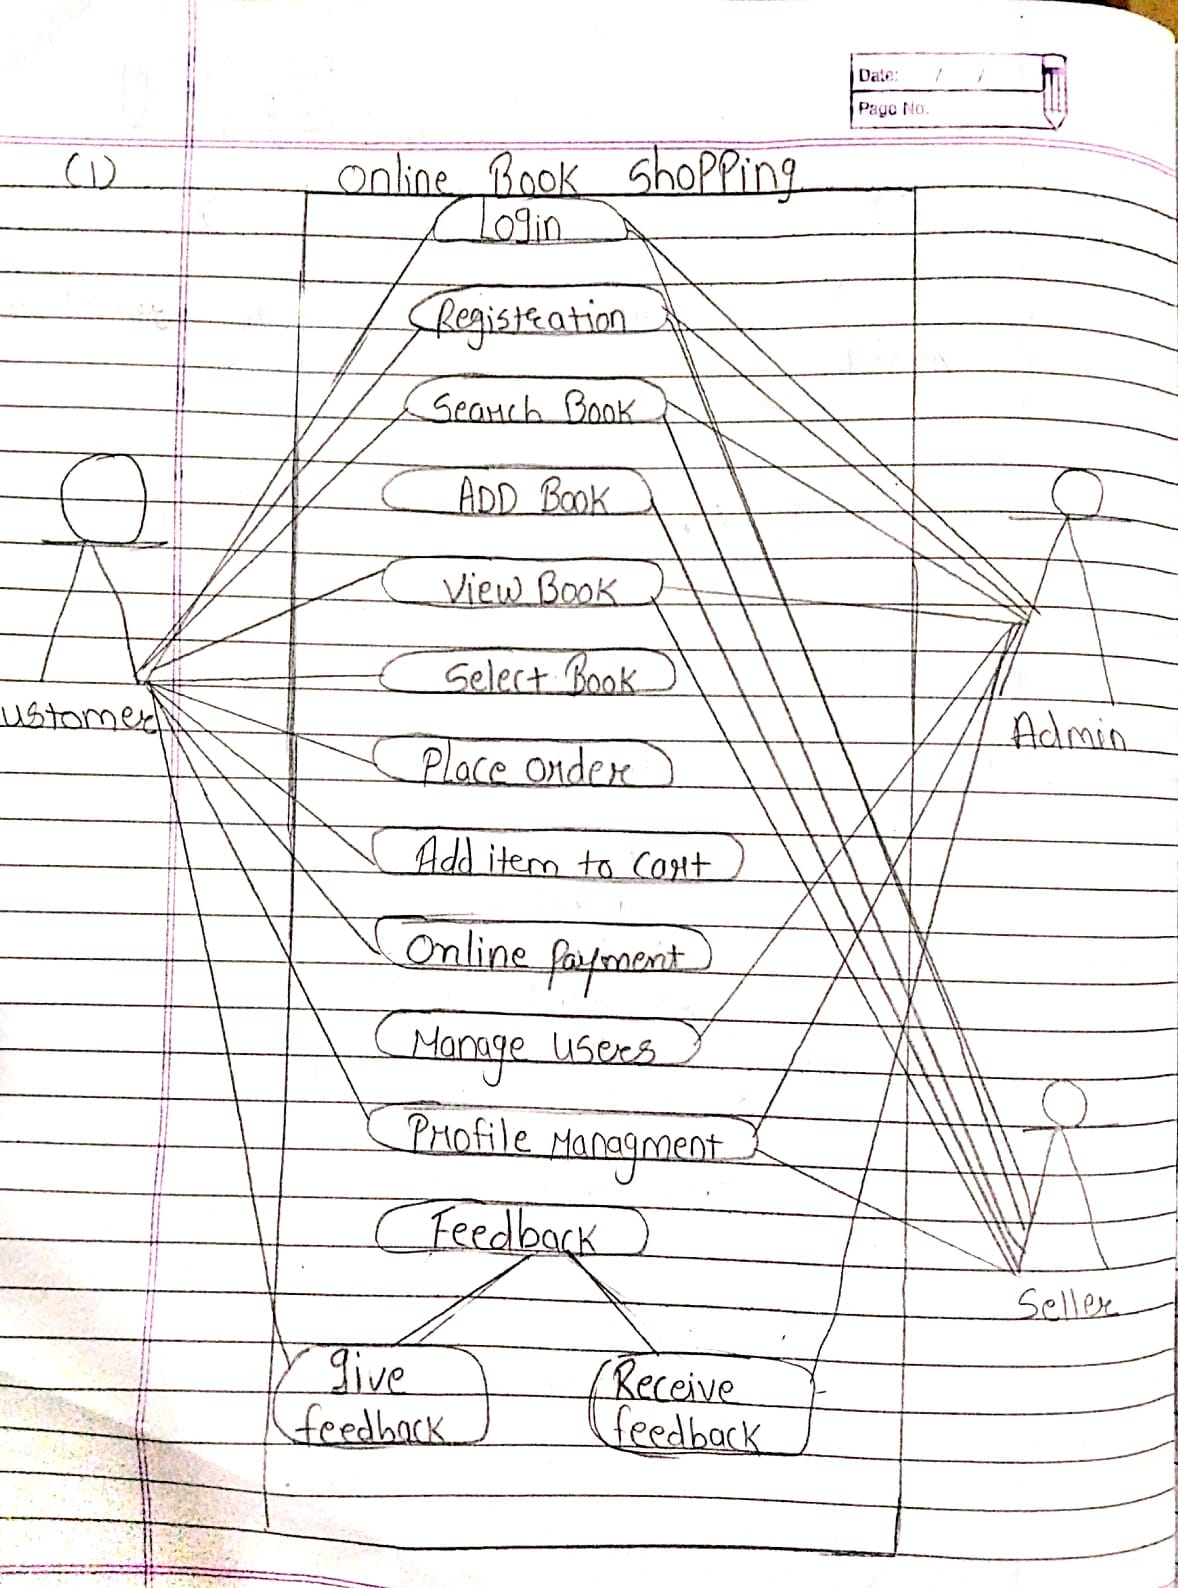 Date: / /
Page No.
(1) Online Book Shopping
Login
Registration
Search Book
ADD Book
View Book
Select Book
ustomer
Place order
Admin
Add item to Cart
Online Payment
Manage users
Profile Managment
Feedback
Seller
give
feedback
Receive
feedback